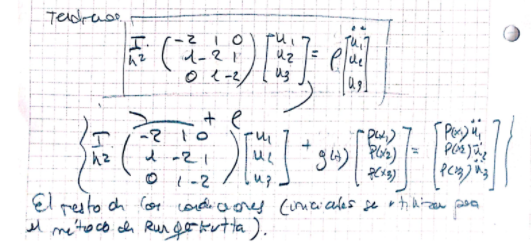 Tendremos
T/h² (-2 1 0 / 1 -2 1 / 0 1 -2) [u₁ / u₂ / u₃] = ρ [ü₁ / ü₂ / ü₃]
+ ρ
{ T/h² (-2 1 0 / 1 -2 1 / 0 1 -2) [u₁ / u₂ / u₃] + g(t) [ρ(x₁) / ρ(x₂) / ρ(x₃)] = [ρ(x₁) ü₁ / ρ(x₂) ü₂ / ρ(x₃) ü₃] }
El resto de las condiciones (iniciales se utilizan para
el método de Runge Kutta).